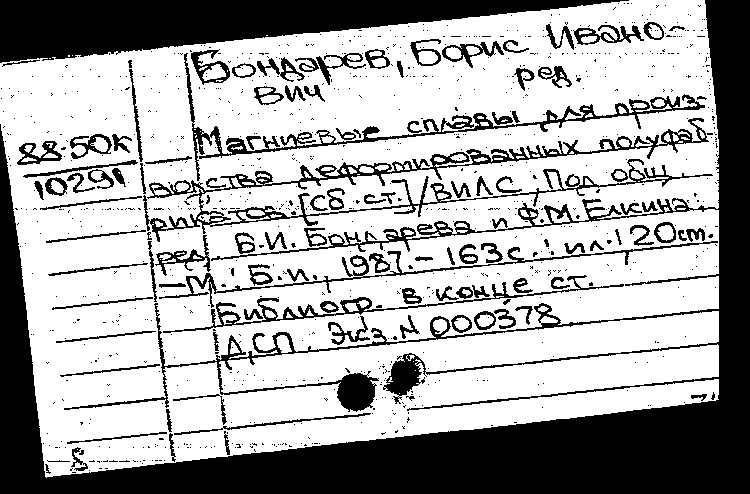 Бондарев, Борис Ивано-
вич ред.
88-50к
10291
Магниевые сплавы для произ-
водства деформированных полуфаб-
рикатов: [Сб. ст.] / ВИЛС; Под общ.
ред. Б.И. Бондарева и Ф.М. Елкина.
—М.: Б.и., 1987.— 163с.: ил.; 20см.
Библиогр. в конце ст.
ДСП. Экз. N 000378
8